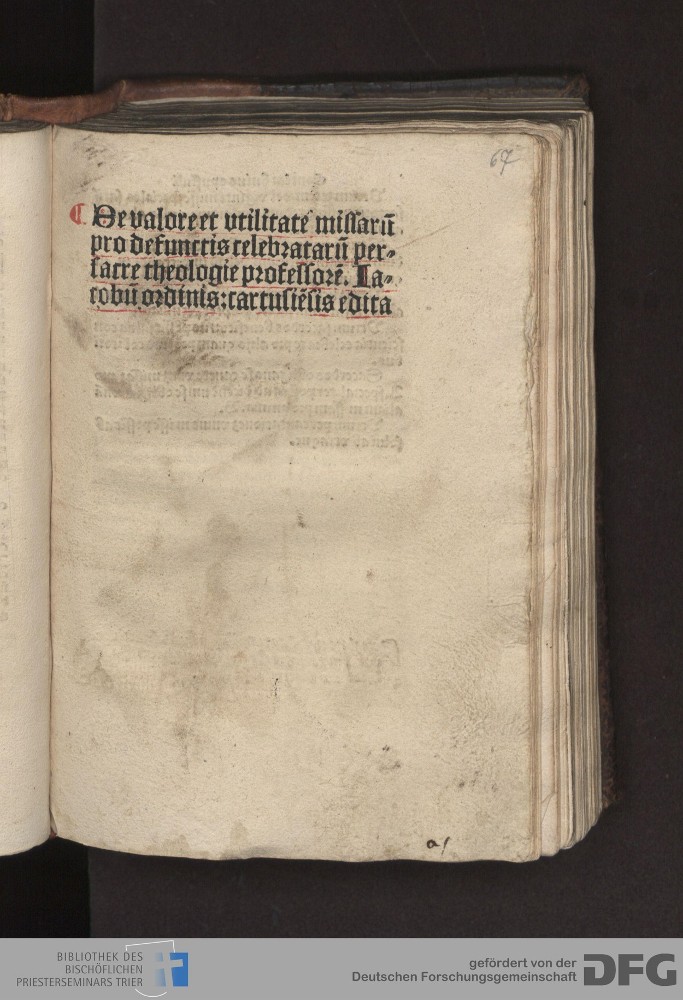 67
De valore et vtilitate missarū
pro defunctis celebratarū per-
sacre theologie professorē. Ia-
cobū ordinis: cartusiēsis edita
a1
BIBLIOTHEK DES
BISCHÖFLICHEN
PRIESTERSEMINARS TRIER
gefördert von der
Deutschen Forschungsgemeinschaft
DFG